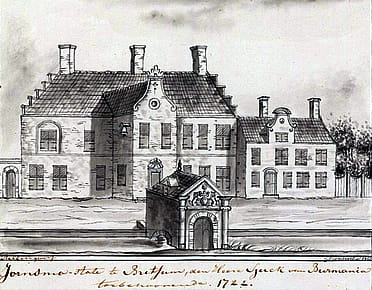 Jornsma-state te Britsum, den Heere Sjuck van Burmania
toebehoorende. 1722.